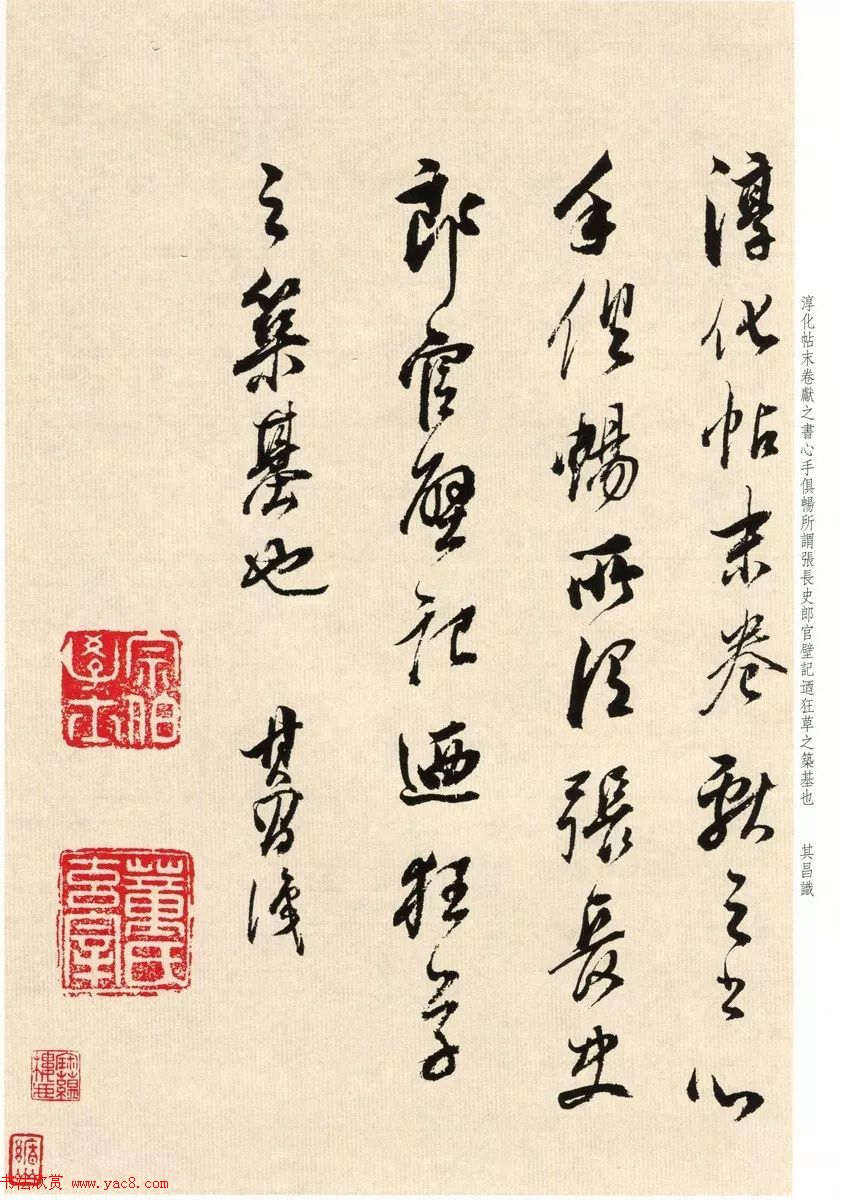 淳化帖末卷獻之書心
手俱暢所謂張長史
郎官壁記迺狂草
之築基也 其昌識
宗伯學士
董氏
淳化帖末卷獻之書心手俱暢所謂張長史郎官壁記迺狂草之築基也 其昌識
书法欣赏 www.yac8.com